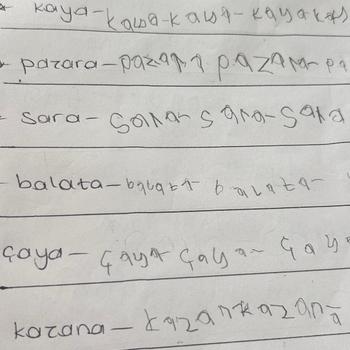 kaya-kaya-kaya-kaya
pazara-pazara pazara- pa
sara- sara- sara- sara
balata-balata balata-
çaya- çaya çaya- çay
kazana- kazankazana